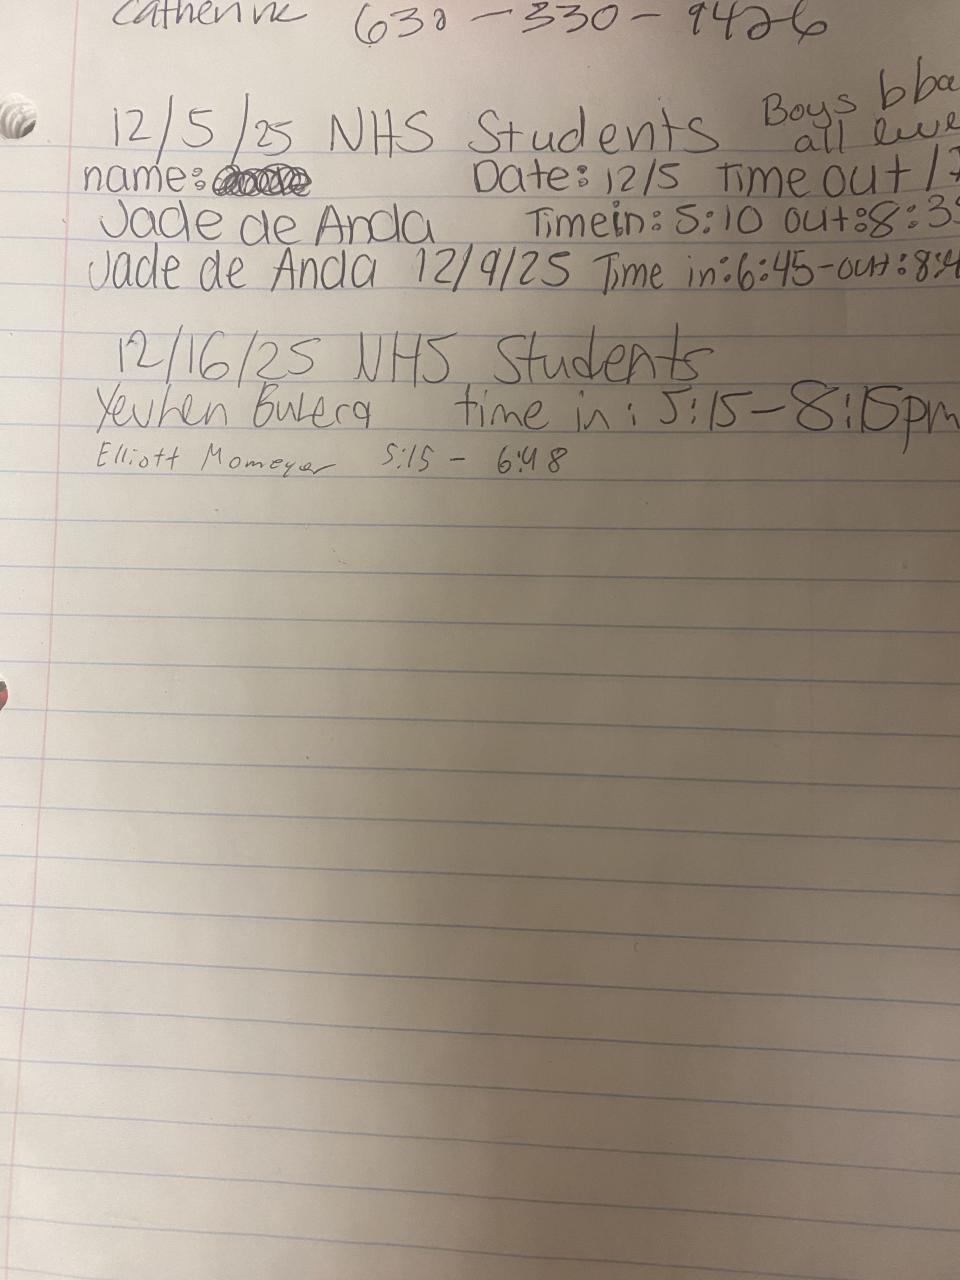 Catherine 630-330-9426
Boys bba
12/5/25 NHS Students all leve
name: Date: 12/5 Time out
Jade de Anda Timein: 5:10 out:8:3
Jade de Anda 12/9/25 Time in:6:45-out:8:4
12/16/25 NHS Students
Yevhen time in: 5:15-8:15pm
Elliott Momeyer 5:15 - 6:48